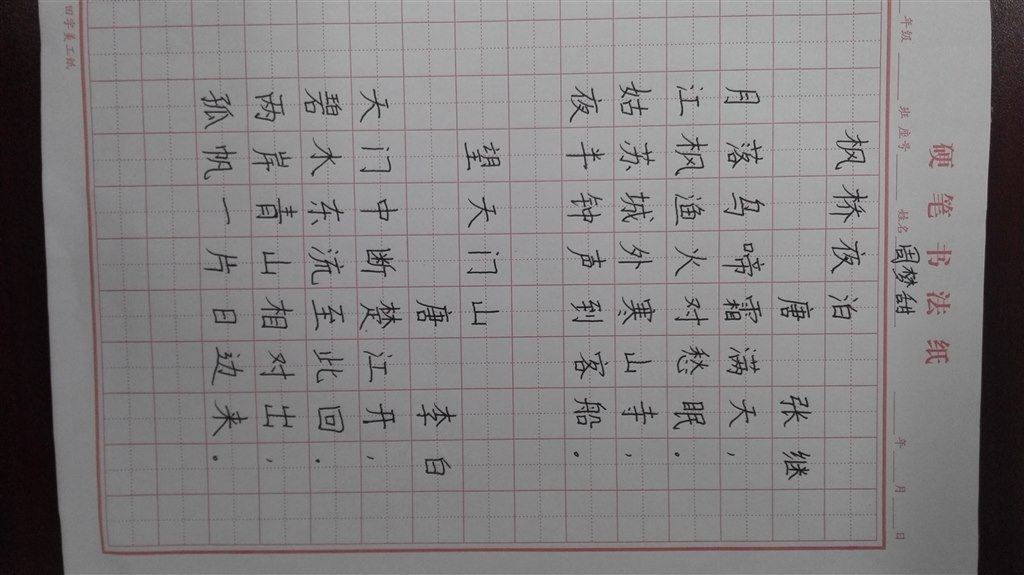 硬笔书法纸
年级 班 座号 姓名 周梦甜 年 月 日
枫桥夜泊
唐 张继
月落乌啼霜满天，
江枫渔火对愁眠。
姑苏城外寒山寺，
夜半钟声到客船。
望天门山
唐 李白
天门中断楚江开，
碧水东流至此回．
两岸青山相对出，
孤帆一片日边来。
田字美工纸